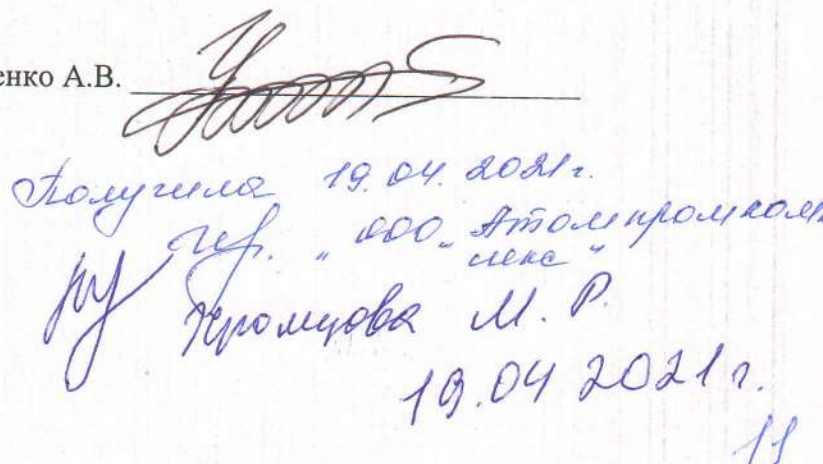 енко А.В.
Получила 19.04.2021г.
"ООО "Атомпромкомп
лекс"
М. Р.
19.04 2021 г.
11